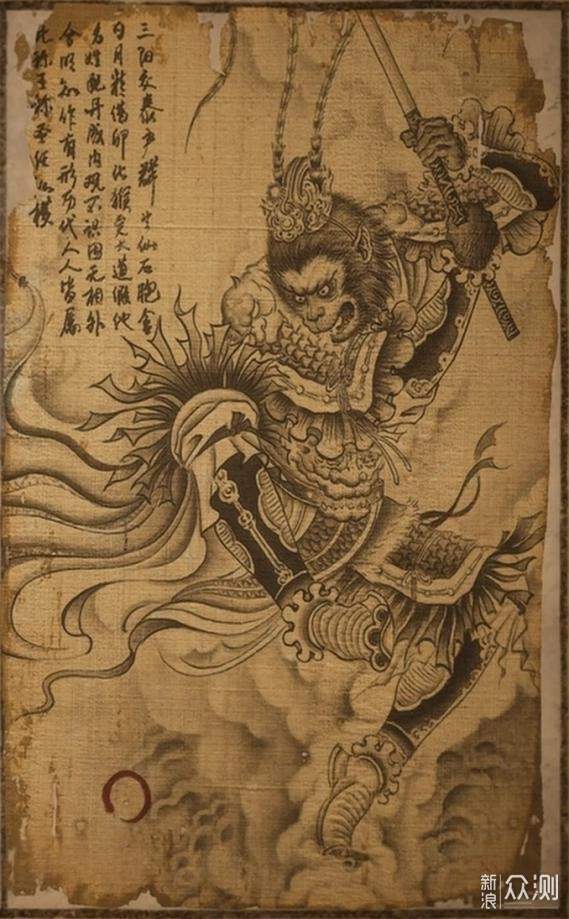 三阳交泰产群生仙石胞含
日月精借卵化猴完大道假他
名姓配丹成内观不识因无相外
合明知作有形历代人人皆属
此称王称圣任纵横
新浪
众测